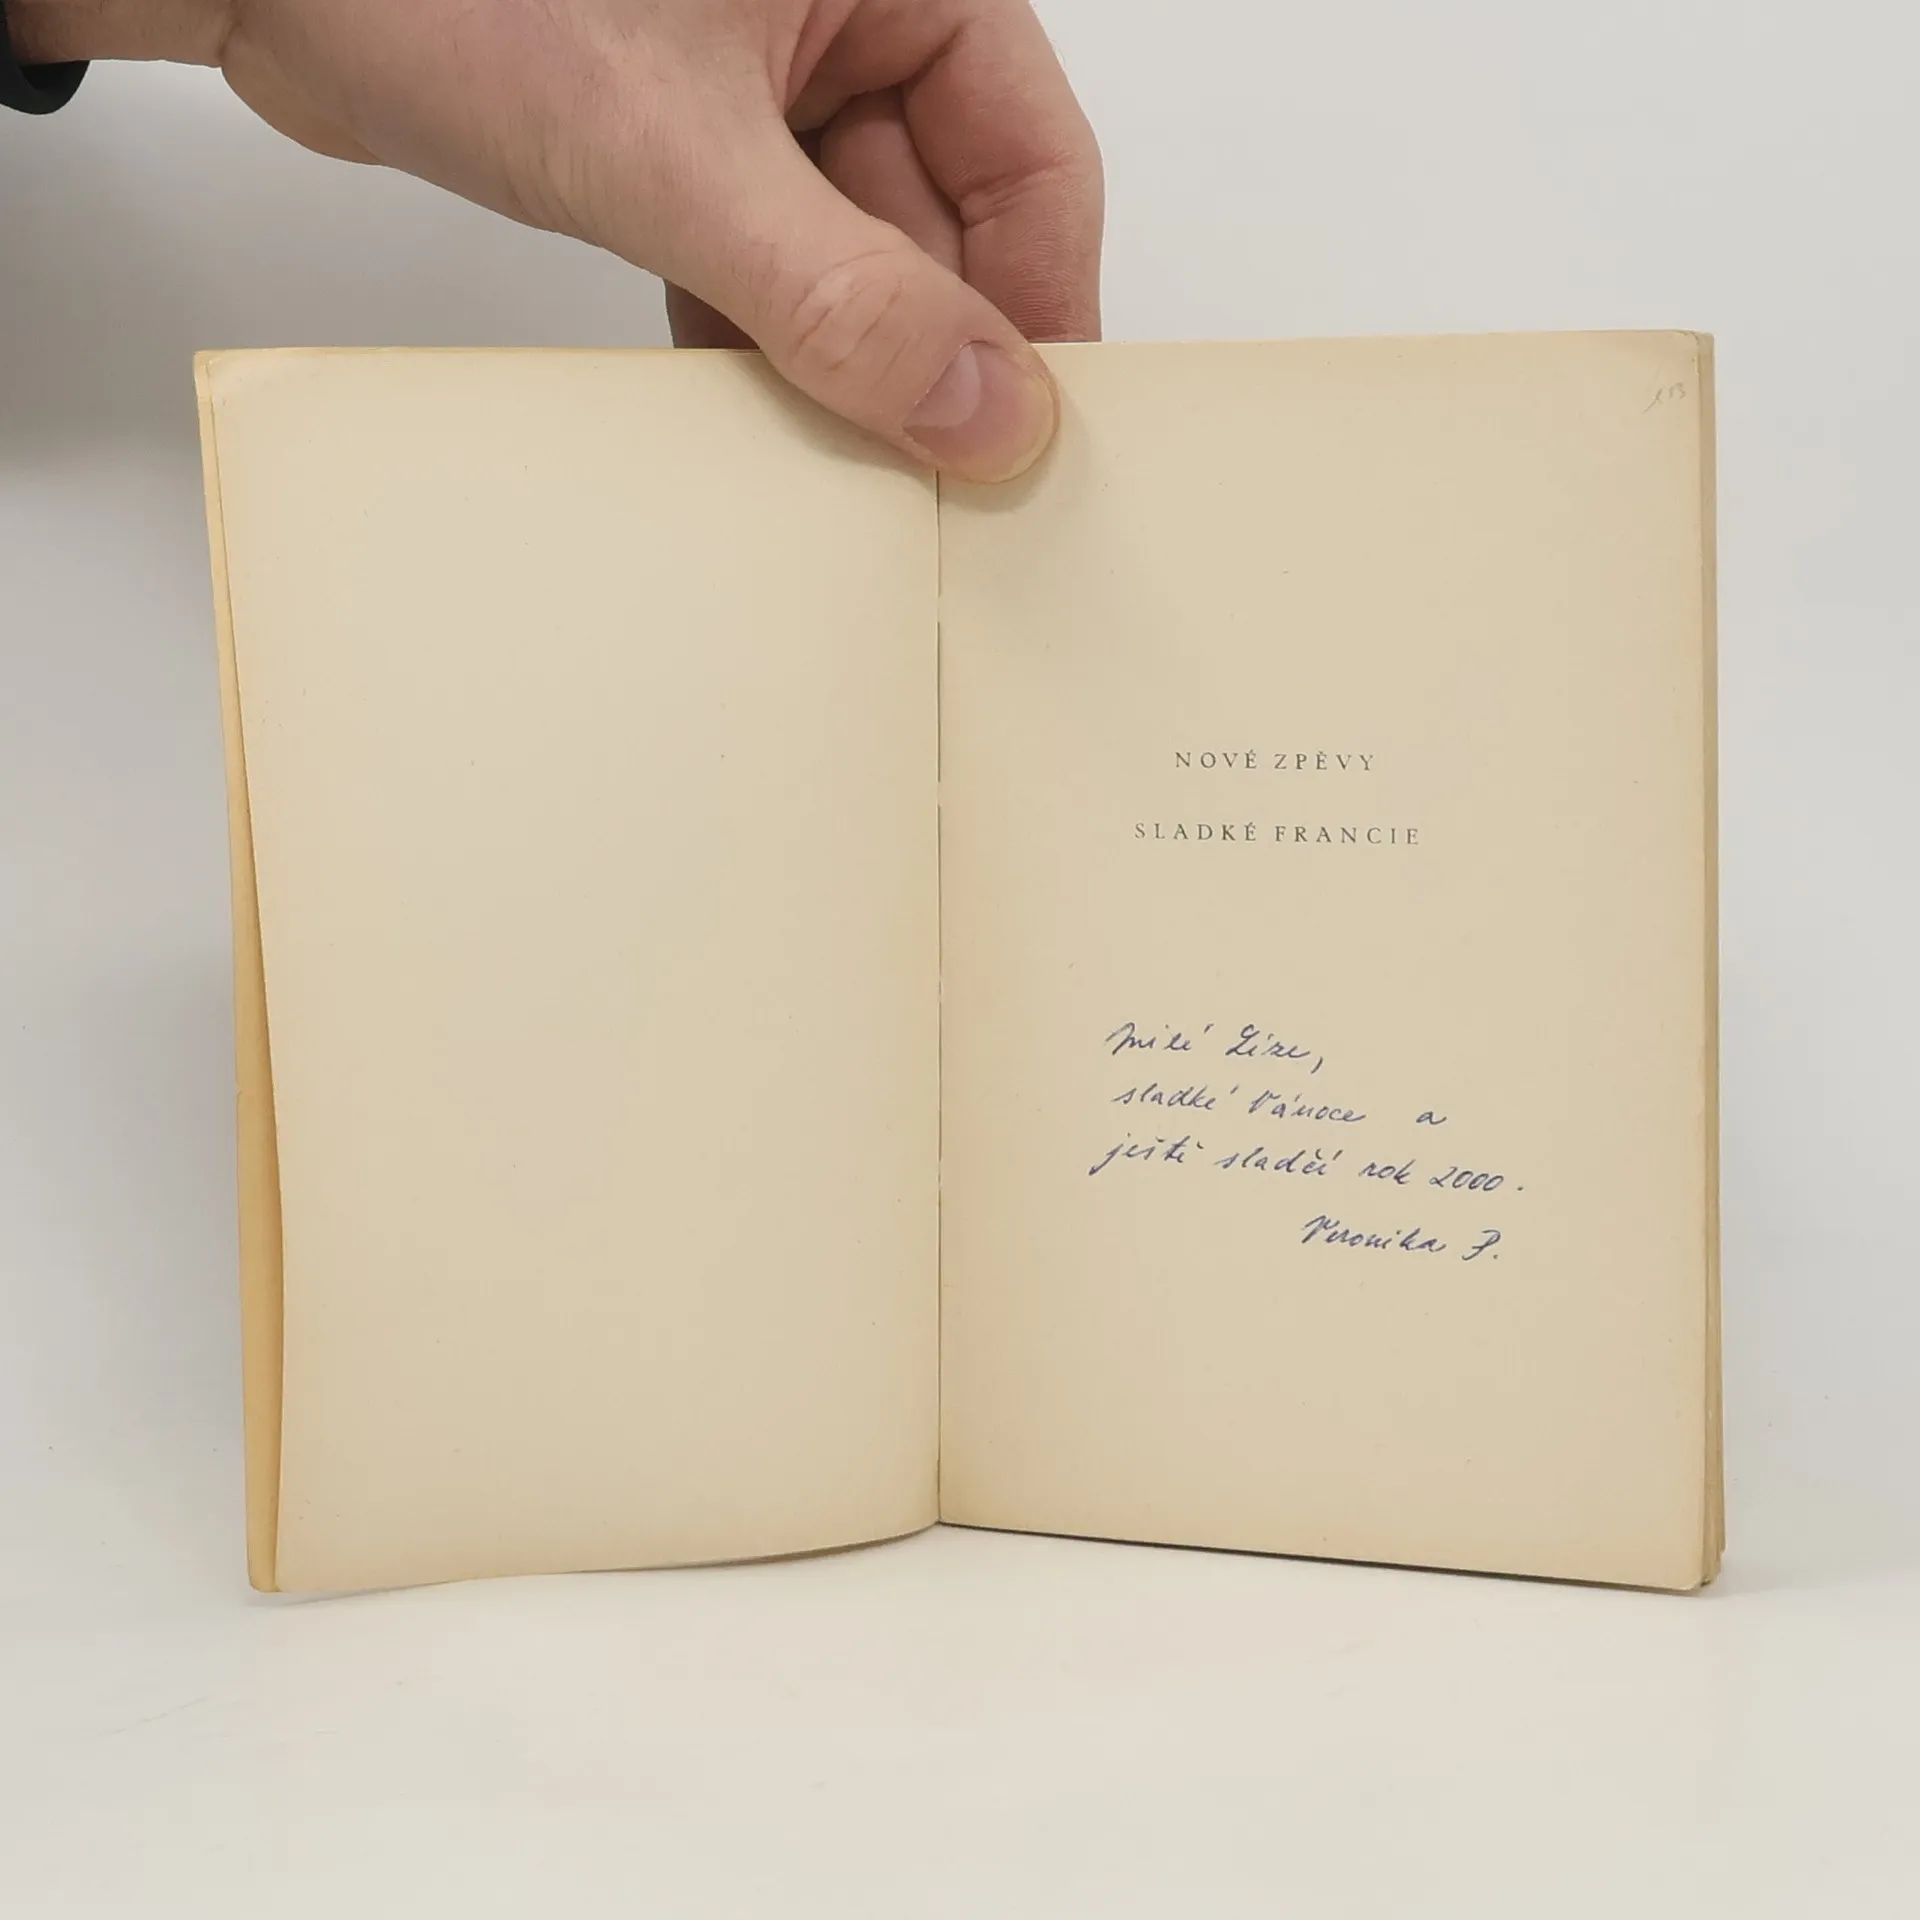 NOVÉ ZPĚVY
SLADKÉ FRANCIE
Milé Líze,
sladké Vánoce a
ještě sladčí rok 2000.
Veronika P.